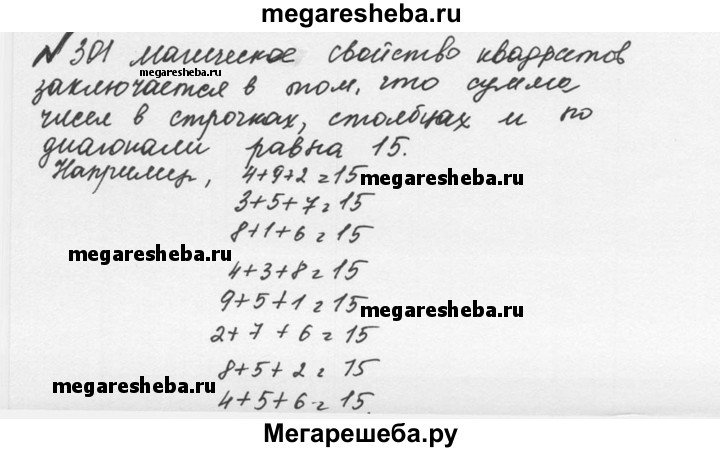 megaresheba.ru
№ 301 магическое свойство квадратов
megaresheba.ru
заключается в том, что сумма
чисел в строчках, столбцах и по
диагонали равна 15.
Например, 4+9+2=15
megaresheba.ru
3+5+7=15
8+1+6=15
megaresheba.ru
4+3+8=15
9+5+1=15
megaresheba.ru
2+7+6=15
8+5+2=15
megaresheba.ru
4+5+6=15.
megaresheba.ru
Мегарешеба.ру